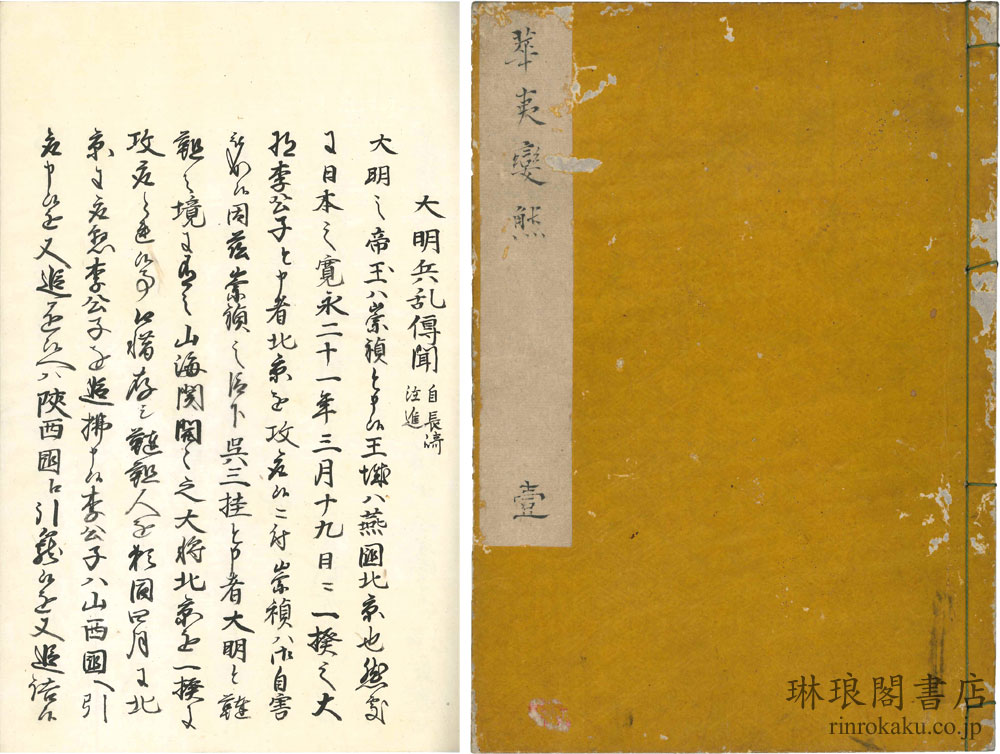 大明兵乱傳聞 自長崎注進
大明之帝王ハ崇禎と申候王城ハ燕國北京也然処
に日本之寛永二十一年三月十九日ニ一揆之大
将李公子と申者北京を攻候ニ付崇禎ハ御自害
被成候因茲崇禎之臣下呉三桂と申者大明と韃
靼之境に有之山海関関之大将北京を一揆に
攻口惜存之韃靼人を頼同四月に北
京に李公子を追拂申候李公子ハ山西國へ引
申候を又追候へハ陝西國に引籠候を又追詰候
華夷變態
壹
琳琅閣書店
rinrokaku.co.jp